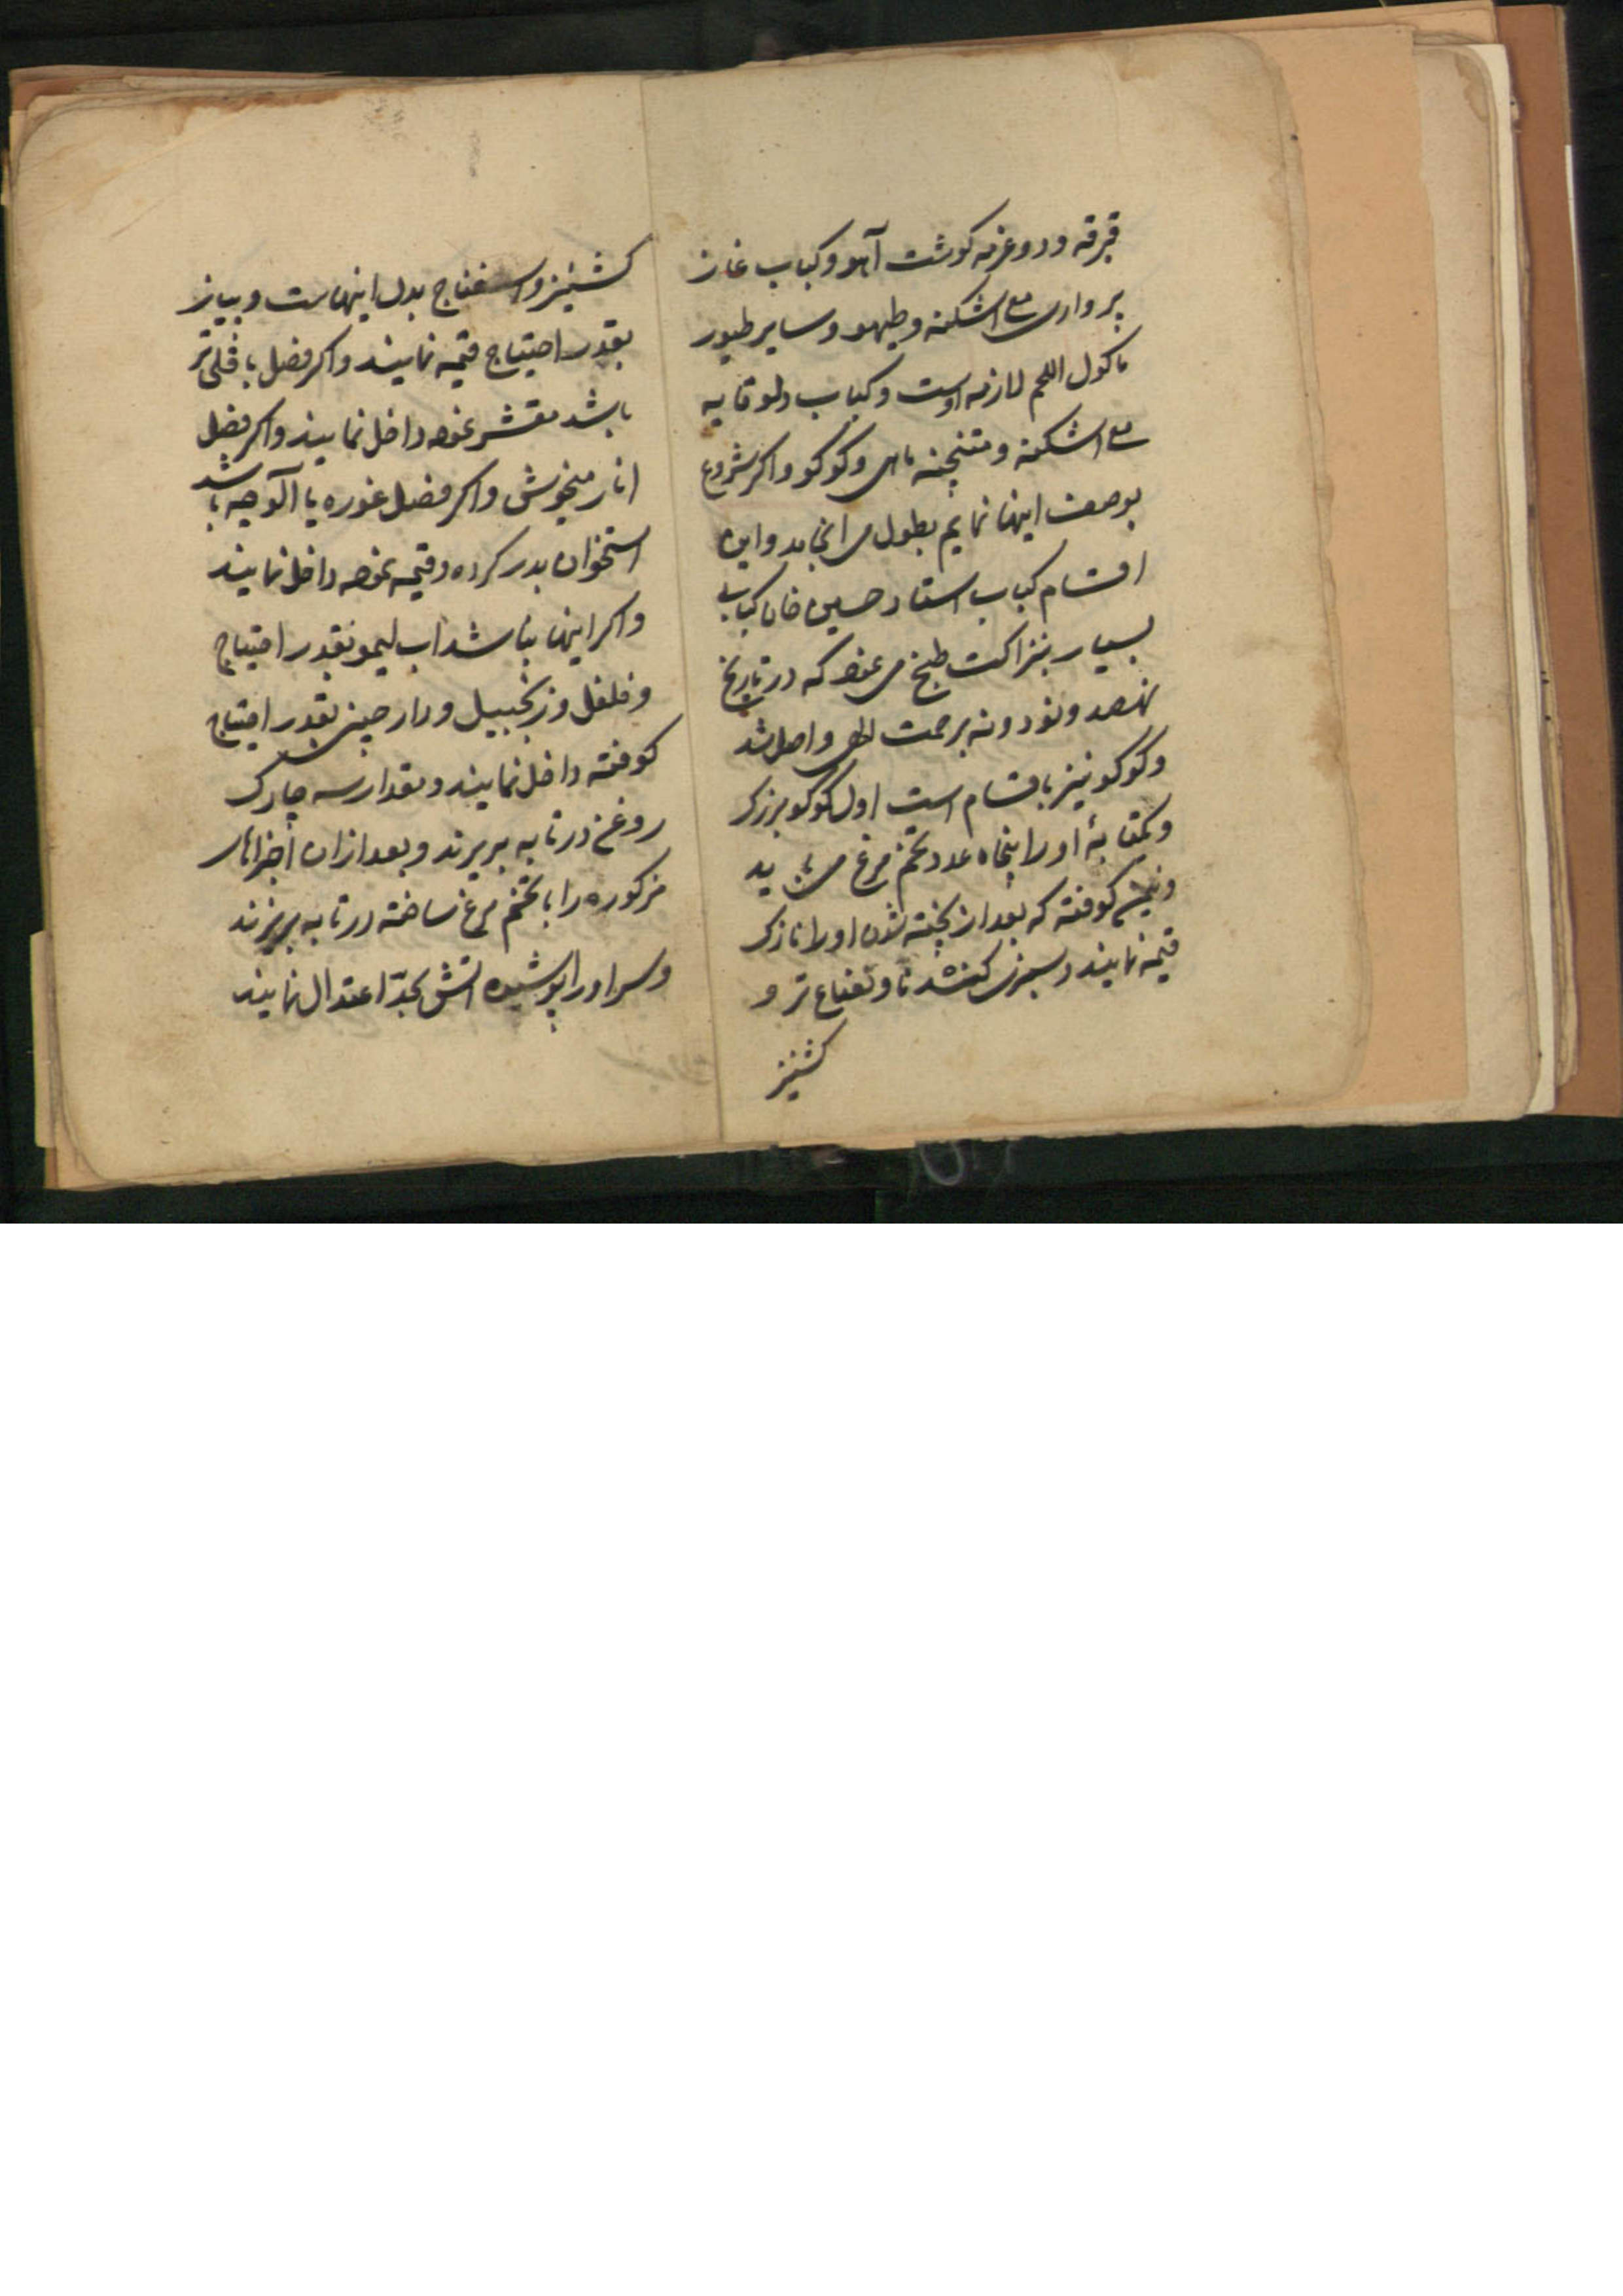 قبرقه و دوغرمه کوشت آهو و کباب غاز
پرواری مع اشکنه و طیهو و سایر طیور
ماکول اللحم لازمه اوست و کباب دلوقابه
مع اشکنه و متنجنه ماهی و کوکو و اکر شروع
بوصف اینها نمایم بطول می انجامد و این
اقسام کباب استاد حسین خان کبابی
بسیار بنزاکت طبخ می نمود که در تاریخ
نهصد و نود و نه برحمت الهی واصل شد
و کوکو نیز باقسام است اول کوکو بزرک
و یکتابهٔ او را پنجاه عدد تخم مرغ می باید
و نیم کوفته که بعد از پخته شدن او را نازک
قیمه نمایند و سبزی کندنا و نعناع تر و
کشنیز
کشنیز و اسفناج بدل اینهاست و پیاز
بقدر احتیاج قیمه نمایند و اکر فصل باقلی تر
باشد مقشر نموده داخل نمایند و اکر فصل
انار میخوش و اکر فصل غوره یا آلوچه باشد
استخوان بدر کرده و قیمه نموده داخل نمایند
و اکر اینها نباشد اب لیمو بقدر احتیاج
و فلفل و زنجبیل و دارچینی بقدر احتیاج
کوفته داخل نمایند و مقدار سه چارک
روغن در تابه بریزند و بعد ازان اجزاهای
مذکوره را با تخم مرغ ساخته در تابه بریزند
و سر او را پوشیده اتش بحدّ اعتدال نمایند